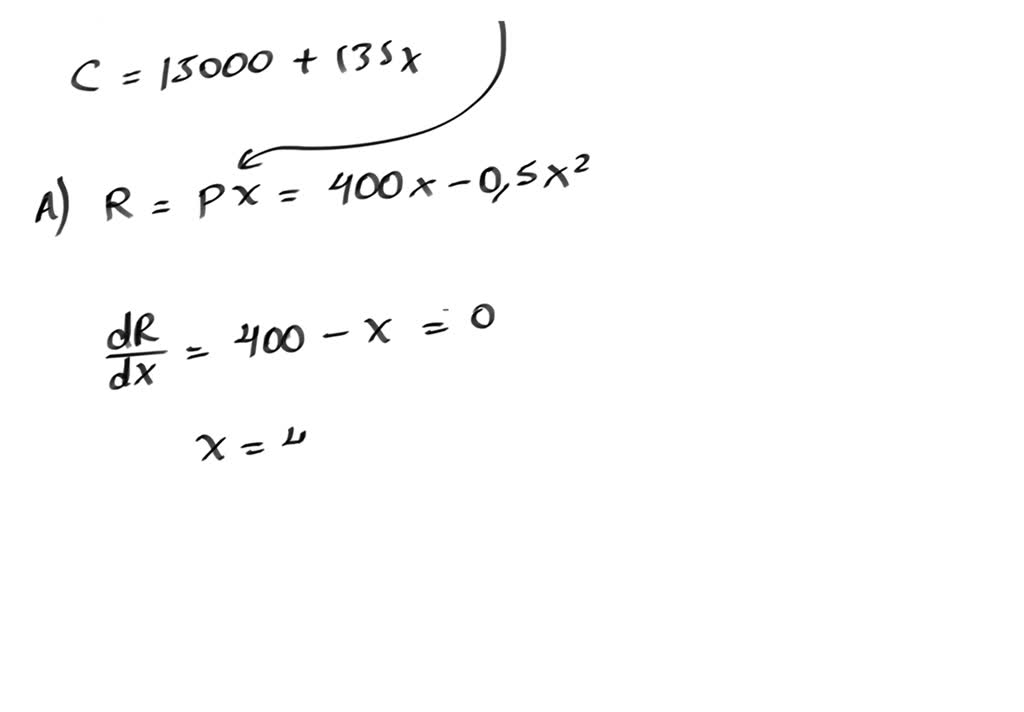 C = 15000 + 135x
A) R = Px = 400x - 0,5x²
dR/dx = 400 - x = 0
x = 4